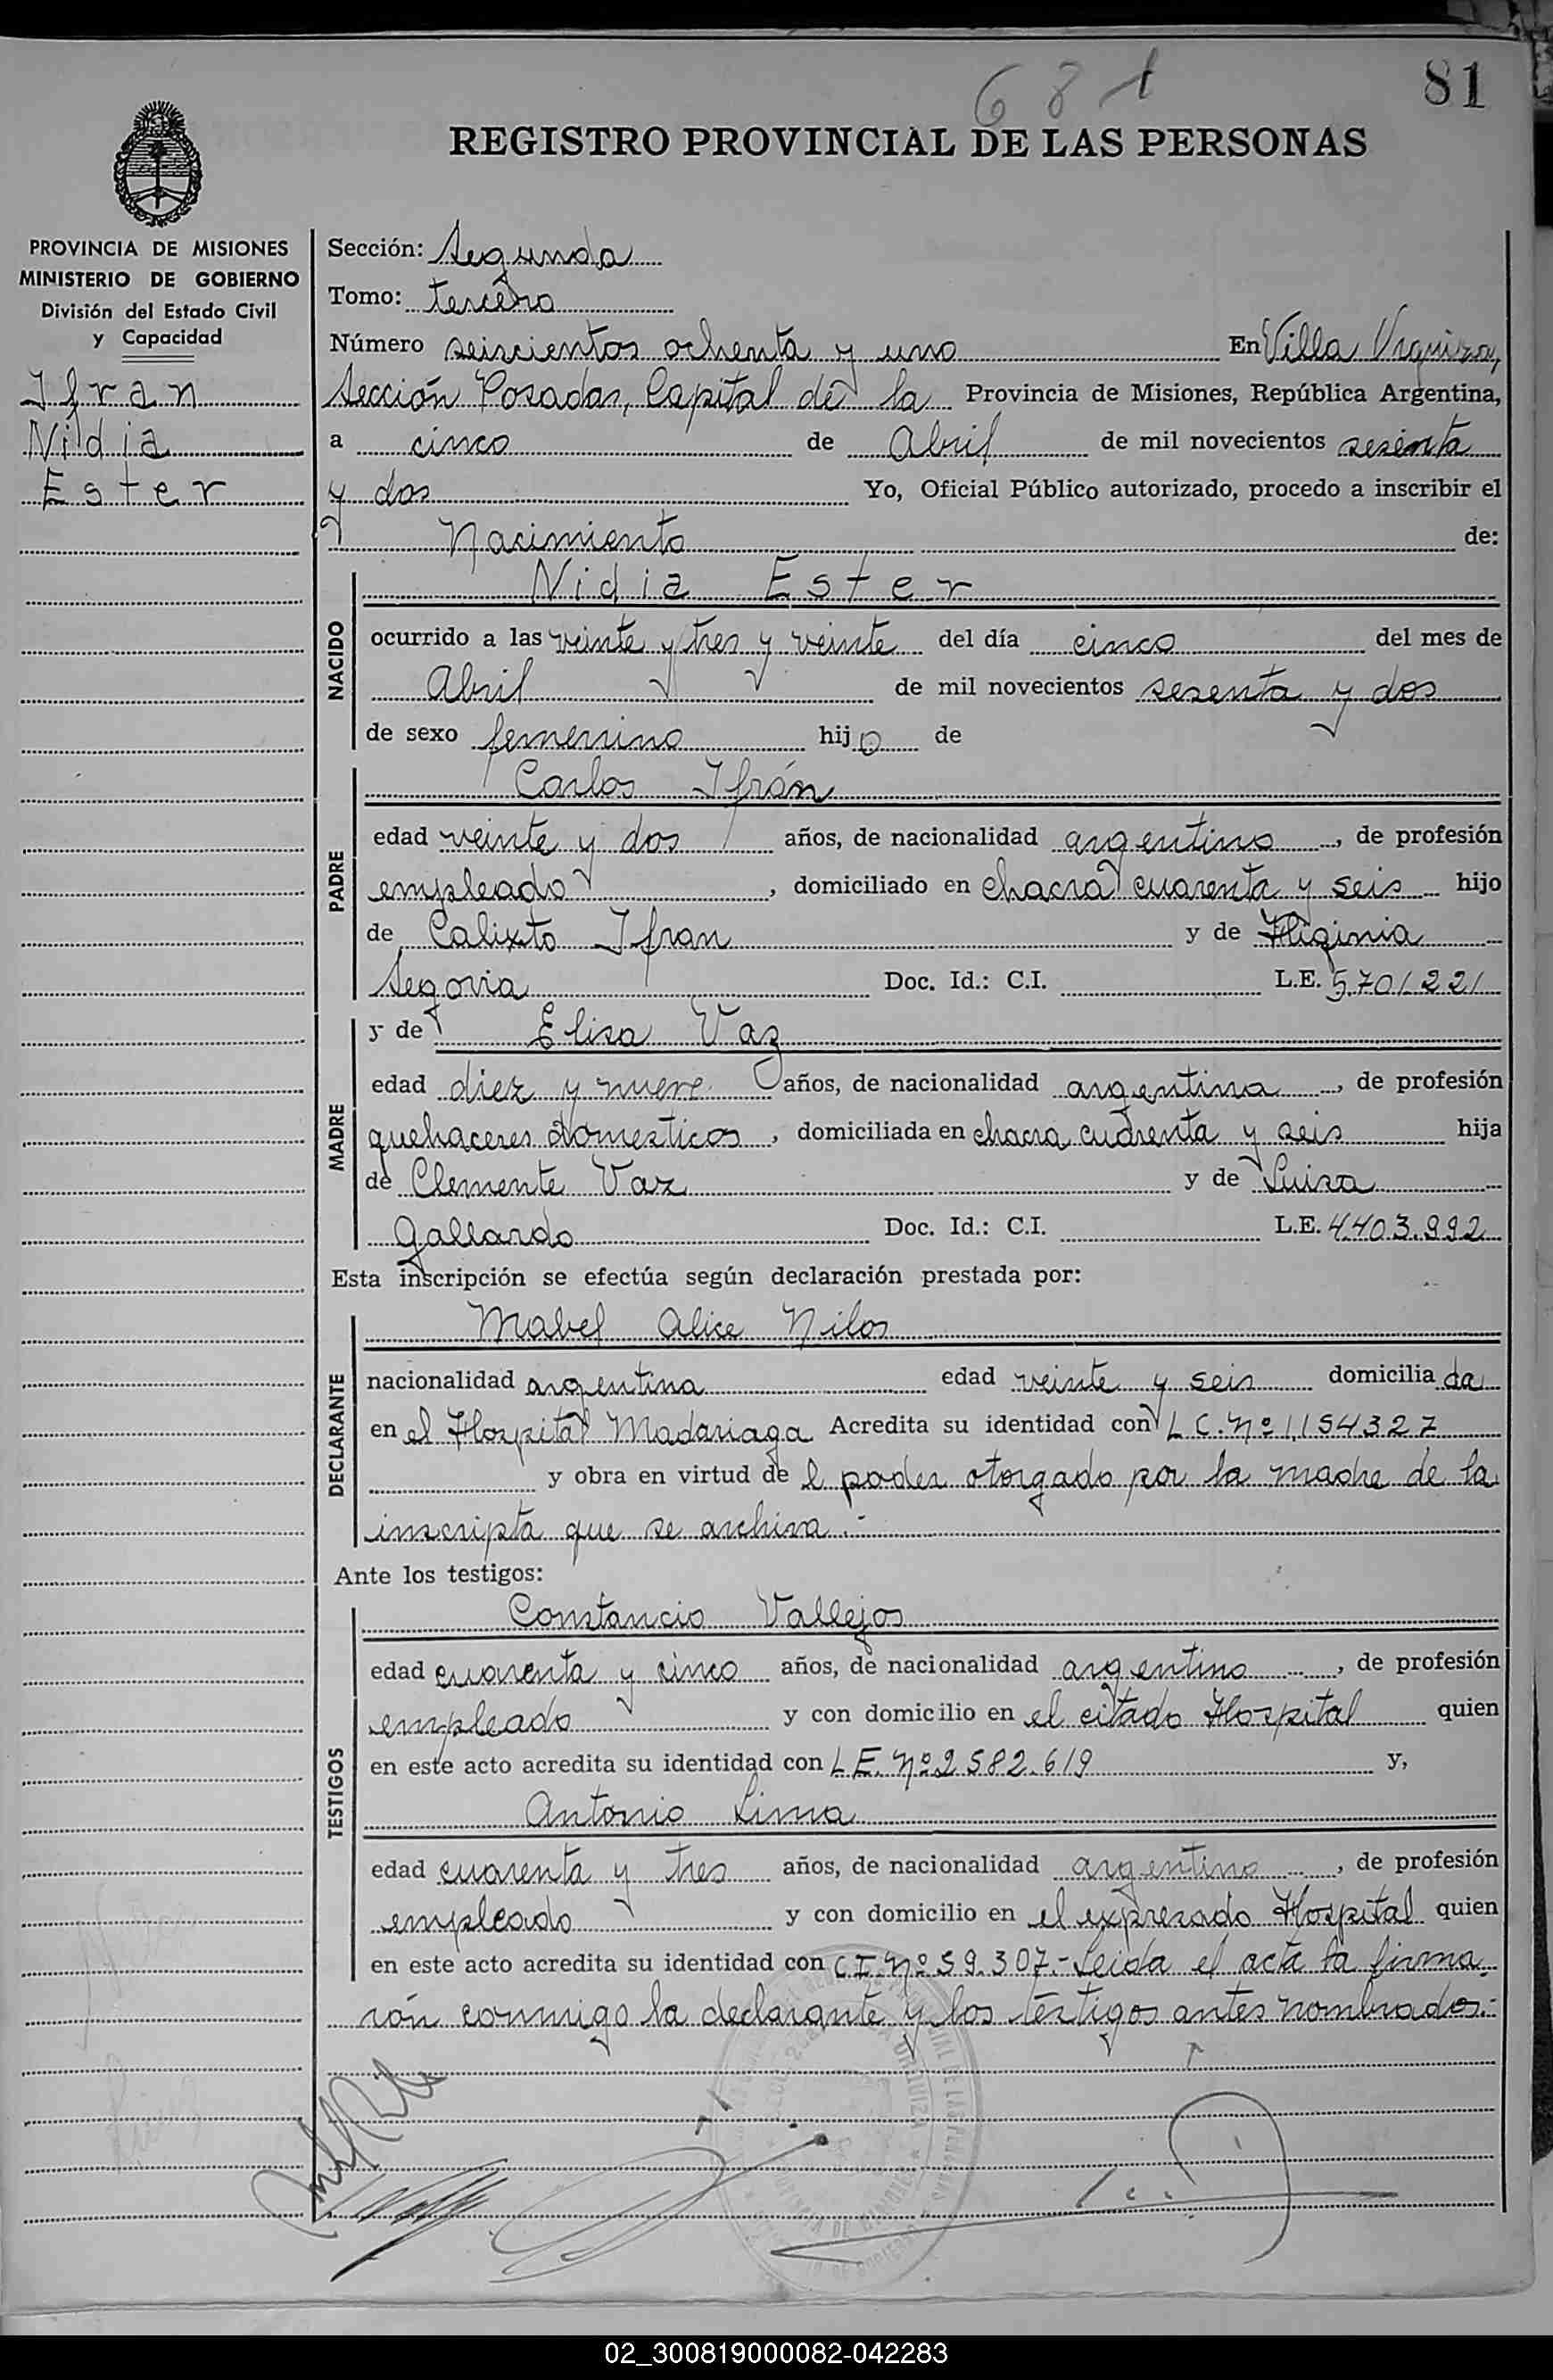 681
81
REGISTRO PROVINCIAL DE LAS PERSONAS
PROVINCIA DE MISIONES
MINISTERIO DE GOBIERNO
División del Estado Civil
y Capacidad
Ifran
Nidia
Ester
Sección: Segunda
Tomo: tercero
Número seiscientos ochenta y uno En Villa Urquiza,
Sección Posadas, Capital de la Provincia de Misiones, República Argentina,
a cinco de Abril de mil novecientos sesenta
y dos Yo, Oficial Público autorizado, procedo a inscribir el
Nacimiento de:
NACIDO
Nidia Ester
ocurrido a las veinte y tres y veinte del día cinco del mes de
Abril de mil novecientos sesenta y dos
de sexo femenino hijo de
PADRE
Carlos Ifrán
edad veinte y dos años, de nacionalidad argentino, de profesión
empleado, domiciliado en chacra cuarenta y seis hijo
de Calixto Ifran y de Higinia
Segovia Doc. Id.: C.I. L.E. 5.701.221
MADRE
y de Elisa Vaz
edad diez y nueve años, de nacionalidad argentina, de profesión
quehaceres domesticos, domiciliada en chacra cuarenta y seis hija
de Clemente Vaz y de Luisa
Gallardo Doc. Id.: C.I. L.E. 4.403.992
Esta inscripción se efectúa según declaración prestada por:
DECLARANTE
Mabel Alice Nilos
nacionalidad argentina edad veinte y seis domiciliada
en el Hospital Madariaga Acredita su identidad con L.C. Nº 1.154327
y obra en virtud del poder otorgado por la madre de la
inscripta que se archiva.-
Ante los testigos:
TESTIGOS
Constancio Vallejos
edad cuarenta y cinco años, de nacionalidad argentino, de profesión
empleado y con domicilio en el citado Hospital quien
en este acto acredita su identidad con L.E. Nº 2.582.619 y,
Antonio Lima
edad cuarenta y tres años, de nacionalidad argentino, de profesión
empleado y con domicilio en el expresado Hospital quien
en este acto acredita su identidad con C.I. Nº 59.307.- Leida el acta la firma-
rón conmigo la declarante y los testigos antes nombrados.-
02_300819000082-042283